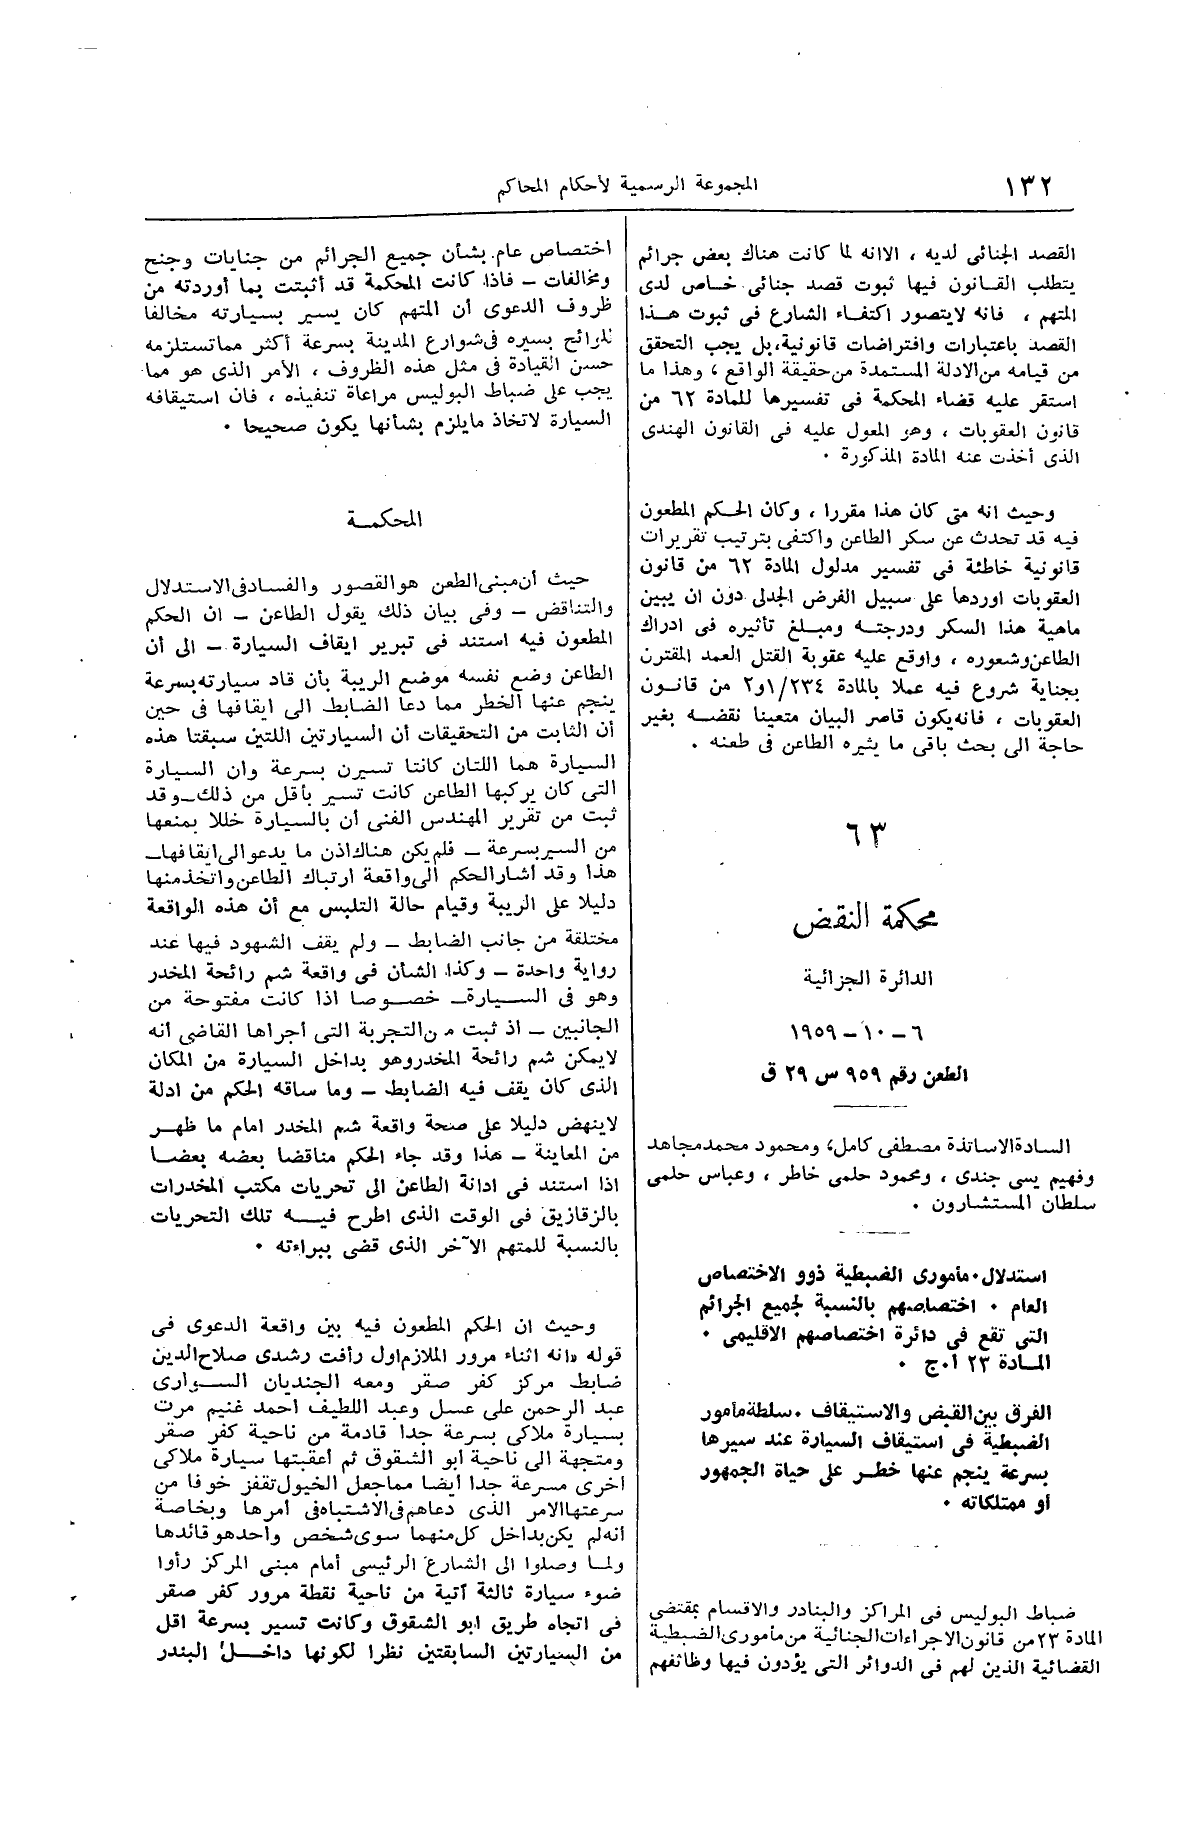 ١٣٢
المجموعة الرسمية لأحكام المحاكم
القصد الجنائى لديه ، الاانه لما كانت هناك بعض جرائم
يتطلب القانون فيها ثبوت قصد جنائى خاص لدى
المتهم ، فانه لايتصور اكتفاء الشارع فى ثبوت هذا
القصد باعتبارات وافتراضات قانونية،بل يجب التحقق
من قيامه من الادلة المستمدة من حقيقة الواقع ، وهذا ما
استقر عليه قضاء المحكمة فى تفسيرها للمادة ٦٢ من
قانون العقوبات ، وهو المعول عليه فى القانون الهندى
الذى أخذت عنه المادة المذكورة .
وحيث انه متى كان هذا مقررا ، وكان الحكم المطعون
فيه قد تحدث عن سكر الطاعن واكتفى بترتيب تقريرات
قانونية خاطئة فى تفسير مدلول المادة ٦٢ من قانون
العقوبات اوردها على سبيل الفرض الجدلى دون ان يبين
ماهية هذا السكر ودرجته ومبلغ تأثيره فى ادراك
الطاعن وشعوره ، واوقع عليه عقوبة القتل العمد المقترن
بجناية شروع فيه عملا بالمادة ١/٢٣٤و٢ من قانون
العقوبات ، فانه يكون قاصر البيان متعينا نقضه بغير
حاجة الى بحث باقى ما يثيره الطاعن فى طعنه .
٦٣
محكمة النقض
الدائرة الجزائية
٦ – ١٠ – ١٩٥٩
الطعن رقم ٩٥٩ س ٢٩ ق
السادة الاساتذة مصطفى كامل، ومحمود محمد مجاهد
وفهيم يسى جندى ، ومحمود حلمى خاطر ، وعباس حلمى
سلطان المستشارون .
استدلال . مأمورى الضبطية ذوو الاختصاص
العام . اختصاصهم بالنسبة لجميع الجرائم
التى تقع فى دائرة اختصاصهم الاقليمى .
المادة ٢٣ ا.ج .
الفرق بين القبض والاستيقاف . سلطة مأمور
الضبطية فى استيقاف السيارة عند سيرها
بسرعة ينجم عنها خطر على حياة الجمهور
أو ممتلكاته .
ضباط البوليس فى المراكز والبنادر والاقسام بمقتضى
المادة ٢٣ من قانون الاجراءات الجنائية من مأمورى الضبطية
القضائية الذين لهم فى الدوائر التى يؤدون فيها وظائفهم
اختصاص عام. بشأن جميع الجرائم من جنايات وجنح
ومخالفات – فاذا كانت المحكمة قد أثبتت بما أوردته من
ظروف الدعوى أن المتهم كان يسير بسيارته مخالفا
للوائح بسيره فى شوارع المدينة بسرعة أكثر مما تستلزمه
حسن القيادة فى مثل هذه الظروف ، الأمر الذى هو مما
يجب على ضباط البوليس مراعاة تنفيذه ، فان استيقافه
السيارة لاتخاذ مايلزم بشأنها يكون صحيحا .
المحكمة
حيث أن مبنى الطعن هو القصور والفساد فى الاستدلال
والتناقض – وفى بيان ذلك يقول الطاعن – ان الحكم
المطعون فيه استند فى تبرير ايقاف السيارة – الى أن
الطاعن وضع نفسه موضع الريبة بأن قاد سيارته بسرعة
ينجم عنها الخطر مما دعا الضابط الى ايقافها فى حين
أن الثابت من التحقيقات أن السيارتين اللتين سبقتا هذه
السيارة هما اللتان كانتا تسيرن بسرعة وان السيارة
التى كان يركبها الطاعن كانت تسير بأقل من ذلك – وقد
ثبت من تقرير المهندس الفنى أن بالسيارة خللا يمنعها
من السير بسرعة – فلم يكن هناك اذن ما يدعو الى ايقافها –
هذا وقد أشار الحكم الى واقعة ارتباك الطاعن واتخذ منها
دليلا على الريبة وقيام حالة التلبس مع أن هذه الواقعة
مختلقة من جانب الضابط – ولم يقف الشهود فيها عند
رواية واحدة – وكذا الشأن فى واقعة شم رائحة المخدر
وهو فى السيارة – خصوصا اذا كانت مفتوحة من
الجانبين – اذ ثبت من التجربة التى أجراها القاضى أنه
لايمكن شم رائحة المخدر وهو بداخل السيارة من المكان
الذى كان يقف فيه الضابط – وما ساقه الحكم من ادلة
لاينهض دليلا على صحة واقعة شم المخدر امام ما ظهر
من المعاينة – هذا وقد جاء الحكم مناقضا بعضه بعضا
اذا استند فى ادانة الطاعن الى تحريات مكتب المخدرات
بالزقازيق فى الوقت الذى اطرح فيه تلك التحريات
بالنسبة للمتهم الآخر الذى قضى ببراءته .
وحيث ان الحكم المطعون فيه بين واقعة الدعوى فى
قوله «انه اثناء مرور الملازم اول رأفت رشدى صلاح الدين
ضابط مركز كفر صقر ومعه الجنديان السوارى
عبد الرحمن على عسل وعبد اللطيف احمد غنيم مرت
بسيارة ملاكى بسرعة جدا قادمة من ناحية كفر صقر
ومتجهة الى ناحية أبو الشقوق ثم أعقبتها سيارة ملاكى
اخرى مسرعة جدا أيضا مما جعل الخيول تقفز خوفا من
سرعتها الامر الذى دعاهم فى الاشتباه فى أمرها وبخاصة
أنه لم يكن بداخل كل منهما سوى شخص واحد هو قائدها
ولما وصلوا الى الشارع الرئيسى أمام مبنى المركز رأوا
ضوء سيارة ثالثة آتية من ناحية نقطة مرور كفر صقر
فى اتجاه طريق ابو الشقوق وكانت تسير بسرعة اقل
من السيارتين السابقتين نظرا لكونها داخل البندر